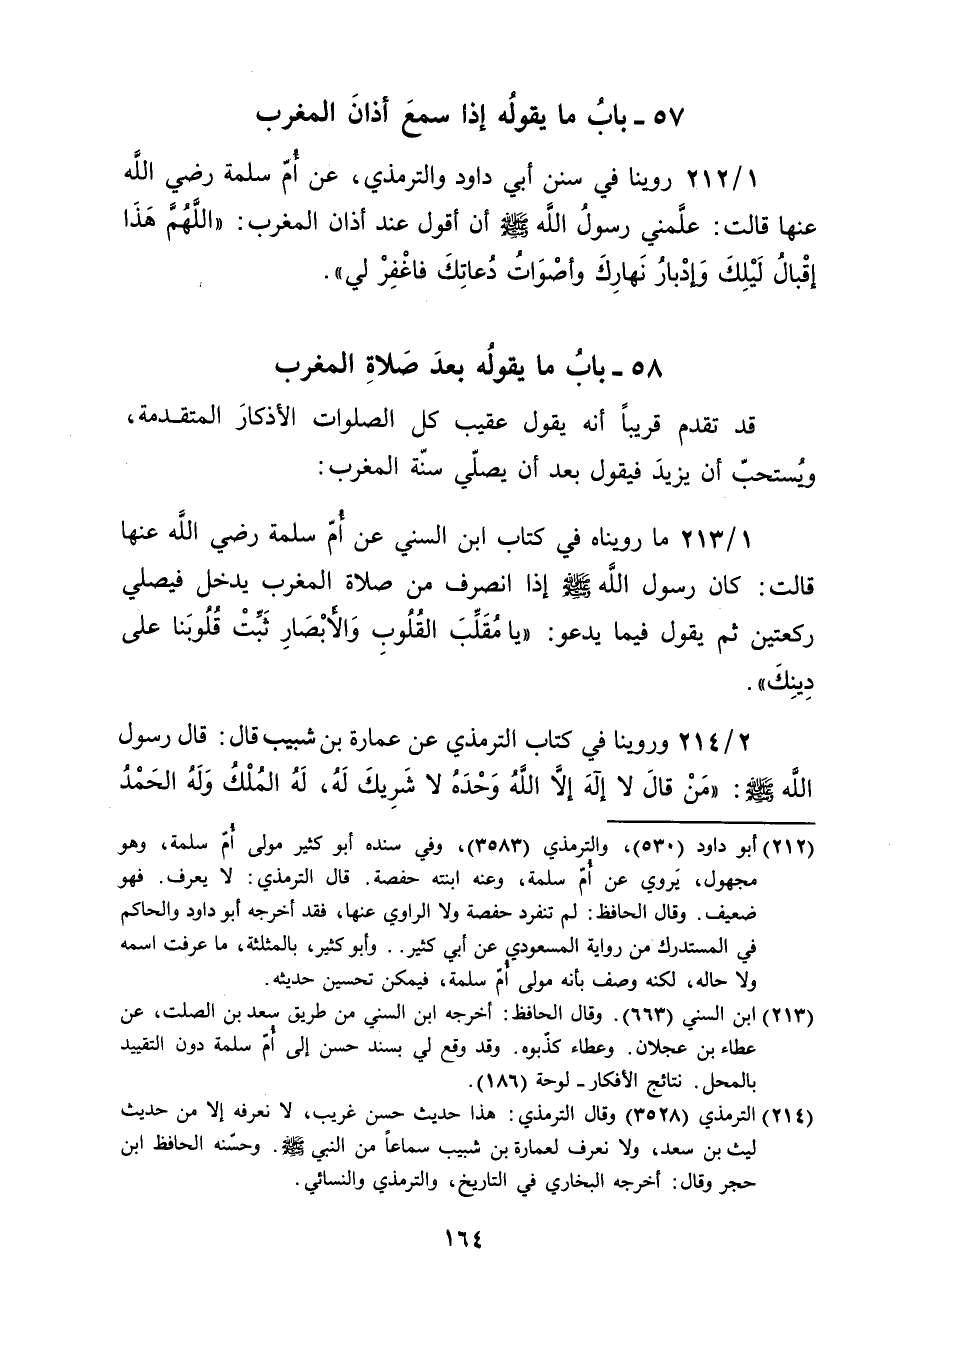 ٥٧ ـ بابُ ما يقولُه إذا سمعَ أذانَ المغرب
٢١٢/١ روينا في سنن أبي داود والترمذي، عن أُمّ سلمة رضي اللَّه
عنها قالت: علَّمني رسولُ اللَّه ﷺ أن أقول عند أذان المغرب: «اللَّهُمَّ هَذَا
إقْبالُ لَيْلِكَ وَإدْبارُ نَهارِكَ وأصْوَاتُ دُعاتِكَ فاغْفِرْ لي».
٥٨ ـ بابُ ما يقولُه بعدَ صَلاةِ المغرب
قد تقدم قريباً أنه يقول عقيب كل الصلوات الأذكارَ المتقدمة،
ويُستحبّ أن يزيدَ فيقول بعد أن يصلّي سنّة المغرب:
٢١٣/١ ما رويناه في كتاب ابن السني عن أُمّ سلمة رضي اللَّه عنها
قالت: كان رسول اللَّه ﷺ إذا انصرف من صلاة المغرب يدخل فيصلي
ركعتين ثم يقول فيما يدعو: «يا مُقَلِّبَ القُلُوبِ وَالأَبْصَارِ ثَبِّتْ قُلُوبَنا على
دِينِكَ».
٢١٤/٢ وروينا في كتاب الترمذي عن عمارة بن شبيب قال: قال رسول
اللَّه ﷺ: «مَنْ قالَ لا إلَهَ إلَّا اللَّهُ وَحْدَهُ لا شَرِيكَ لَهُ، لَهُ المُلْكُ وَلَهُ الحَمْدُ
(٢١٢) أبو داود (٥٣٠)، والترمذي (٣٥٨٣)، وفي سنده أبو كثير مولى أُمّ سلمة، وهو
مجهول، يَروي عن أُمّ سلمة، وعنه ابنته حفصة. قال الترمذي: لا يعرف. فهو
ضعيف. وقال الحافظ: لم تنفرد حفصة ولا الراوي عنها، فقد أخرجه أبو داود والحاكم
في المستدرك من رواية المسعودي عن أبي كثير.. وأبو كثير، بالمثلثة، ما عرفت اسمه
ولا حاله، لكنه وصف بأنه مولى أُمّ سلمة، فيمكن تحسين حديثه.
(٢١٣) ابن السني (٦٦٣). وقال الحافظ: أخرجه ابن السني من طريق سعد بن الصلت، عن
عطاء بن عجلان. وعطاء كذّبوه. وقد وقع لي بسند حسن إلى أُمّ سلمة دون التقييد
بالمحل. نتائج الأفكار ـ لوحة (١٨٦).
(٢١٤) الترمذي (٣٥٢٨) وقال الترمذي: هذا حديث حسن غريب، لا نعرفه إلا من حديث
ليث بن سعد، ولا نعرف لعمارة بن شبيب سماعاً من النبي ﷺ. وحسّنه الحافظ ابن
حجر وقال: أخرجه البخاري في التاريخ، والترمذي والنسائي.
١٦٤